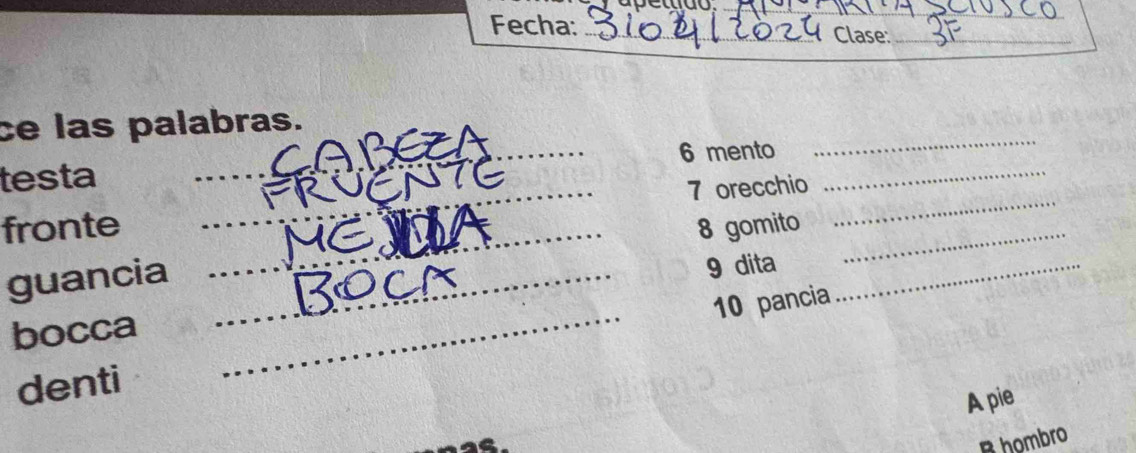 Fecha: 3/04/2024 Clase: 3F
ce las palabras.
testa CABEZA
fronte FRUENTE
guancia
bocca BOCA
denti
6 mento
7 orecchio
8 gomito
9 dita
10 pancia
A pie
B hombro